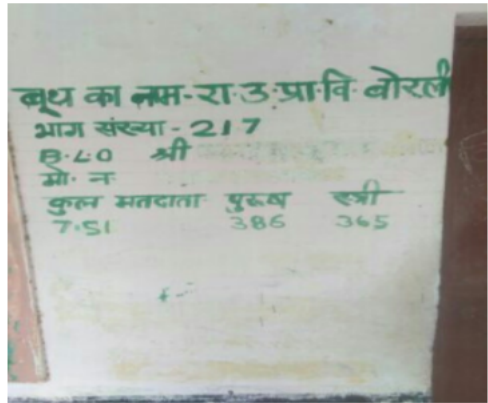 बूथ का नाम-रा·उ·प्रा·वि बोरली
भाग संख्या - 217
B·LO श्री
मो· न·
कुल मतदाता पुरूष स्त्री
7·51 386 365